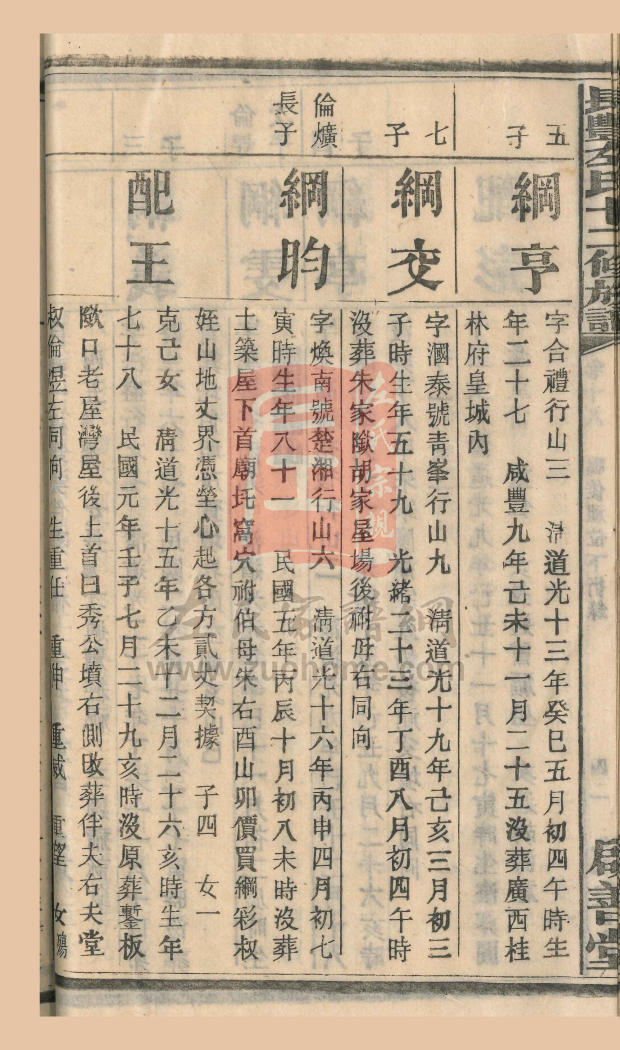 長豐左氏十二修族譜
啟善堂
五子
綱亨
字合禮行山三 清道光十三年癸巳五月初四午時生
年二十七 咸豐九年己未十一月二十五沒葬廣西桂
林府皇城內
七子
綱交
字溷泰號青峯行山九 清道光十九年己亥三月初三
子時生年五十九 光緒二十三年丁酉八月初四午時
沒葬朱家隞胡家屋場後祔母右同向
倫爌長子
綱昀
字煥南號楚湘行山六 清道光十六年丙申四月初七
寅時生年八十一 民國五年丙辰十月初八未時沒葬
土築屋下首廟圫窩穴祔伯母朱右酉山卯價買綱彩叔
姪山地丈界憑塋心起各方貳丈契據 子四 女一
配王
克己女 清道光十五年乙未十二月二十六亥時生年
七十八 民國元年壬子七月二十九亥時沒原葬鏨板
隞口老屋灣屋後上首曰秀公墳右側改葬伴夫右夫堂
叔倫昱左同向 生重任 重紳 重威 重望 女
www.zuohome.com